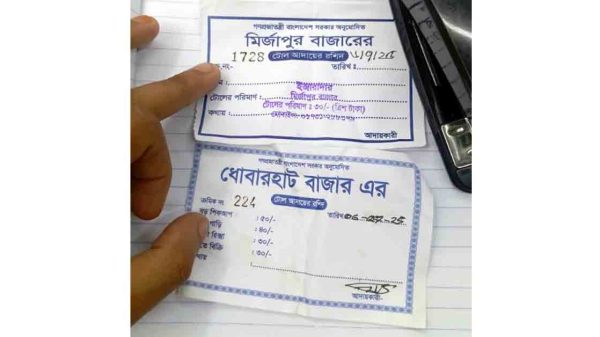 গণপ্রজাতন্ত্রী বাংলাদেশ সরকার অনুমোদিত
মির্জাপুর বাজারের
নং- 1728 টোল আদায়ের রশিদ তারিখ ঃ
ইজারাদার
টোলের পরিমাণ ঃ মির্জাপুর বাজার
টোলের পরিমাণ ঃ ৩০/- (ত্রিশ টাকা)
কথায় ঃ
আদায়কারী
গণপ্রজাতন্ত্রী বাংলাদেশ সরকার অনুমোদিত
ধোবারহাট বাজার এর
ক্রমিক নং 224 টোল আদায়ের রশিদ
পিকআপ : ৫০/- তারিখ
গাড়ি : ৪০/-
রিক্সা : ৩০/-
বিক্রি : ৩০/-
আদায়কারী-